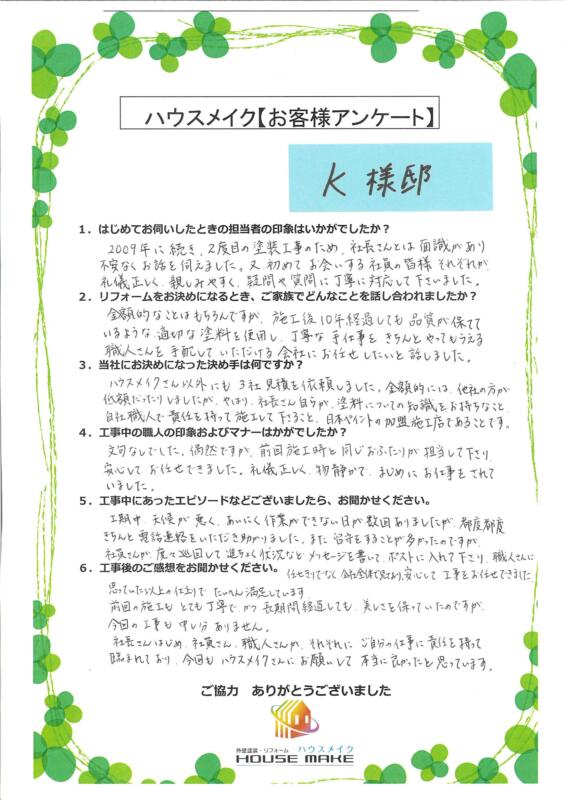 ハウスメイク【お客様アンケート】
K 様邸
1．はじめてお伺いしたときの担当者の印象はいかがでしたか？
2009年に続き、2度目の塗装工事のため、社長さんとは面識があり
不安なくお話を伺えました。又、初めてお会いする社員の皆様それぞれが
礼儀正しく、親しみやすく、疑問や質問に丁寧に対応して下さいました。
2．リフォームをお決めになるとき、ご家族でどんなことを話し合われましたか？
金額的なことはもちろんですが、施工後10年経過しても品質が保てて
いるような適切な塗料を使用し、丁寧な手仕事をきちんとやってもらえる
職人さんを手配していただける会社にお任せしたいと話しました。
3．当社にお決めになった決め手は何ですか？
ハウスメイクさん以外にも3社見積を依頼しました。金額的には、他社の方が
低額だったりしましたが、やはり、社長さん自らが、塗料についての知識をお持ちなこと、
自社職人で責任を持って施工して下さること、日本ペイントの加盟施工店であることです。
4．工事中の職人の印象およびマナーはかがでしたか？
文句なしでした。偶然ですが、前回施工時と同じおふたりが担当して下さり、
安心してお任せできました。礼儀正しく、物静かで、まじめにお仕事をされて
いました。
5．工事中にあったエピソードなどございましたら、お聞かせください。
工期中、天候が悪く、あいにく作業ができない日が数回ありましたが、都度都度
きちんと電話連絡をいただき助かりました。また、留守をすることが多かったのですが、
社員さんが、度々巡回して進ちょく状況などメッセージを書いて、ポストに入れて下さり、職人さんに
任せきりでなく、会社全体で見ており、安心して工事をお任せできました。
6．工事後のご感想をお聞かせください。
思っていた以上の仕上りで、たいへん満足しています。
前回の施工もとても丁寧で、かつ長期間経過しても、美しさを保っていたのですが、
今回の工事も申し分ありません。
社長さんはじめ、社員さん、職人さんが、それぞれにご自分の仕事に責任を持って
臨まれており、今回もハウスメイクさんにお願いして本当に良かったと思っています。
ご協力　ありがとうございました
外壁塗装・リフォーム　ハウスメイク
HOUSE MAKE